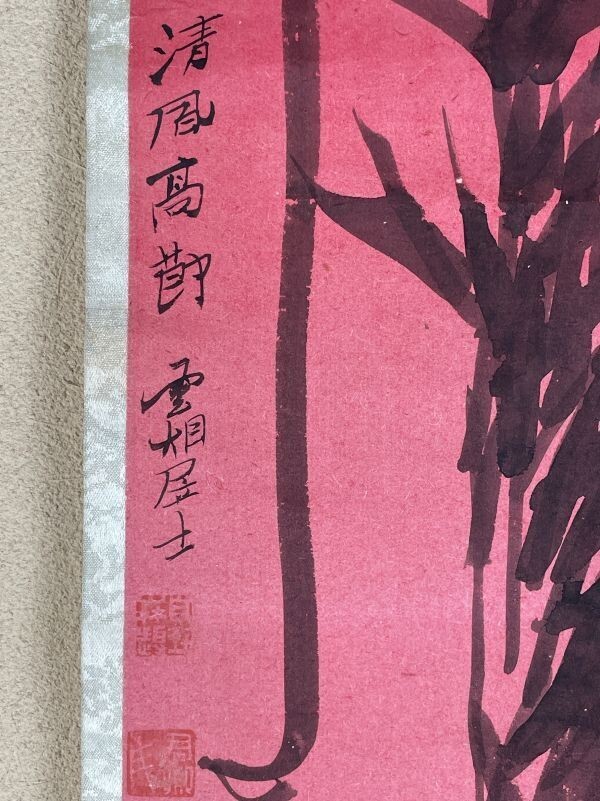 清風高節
雲烟居士